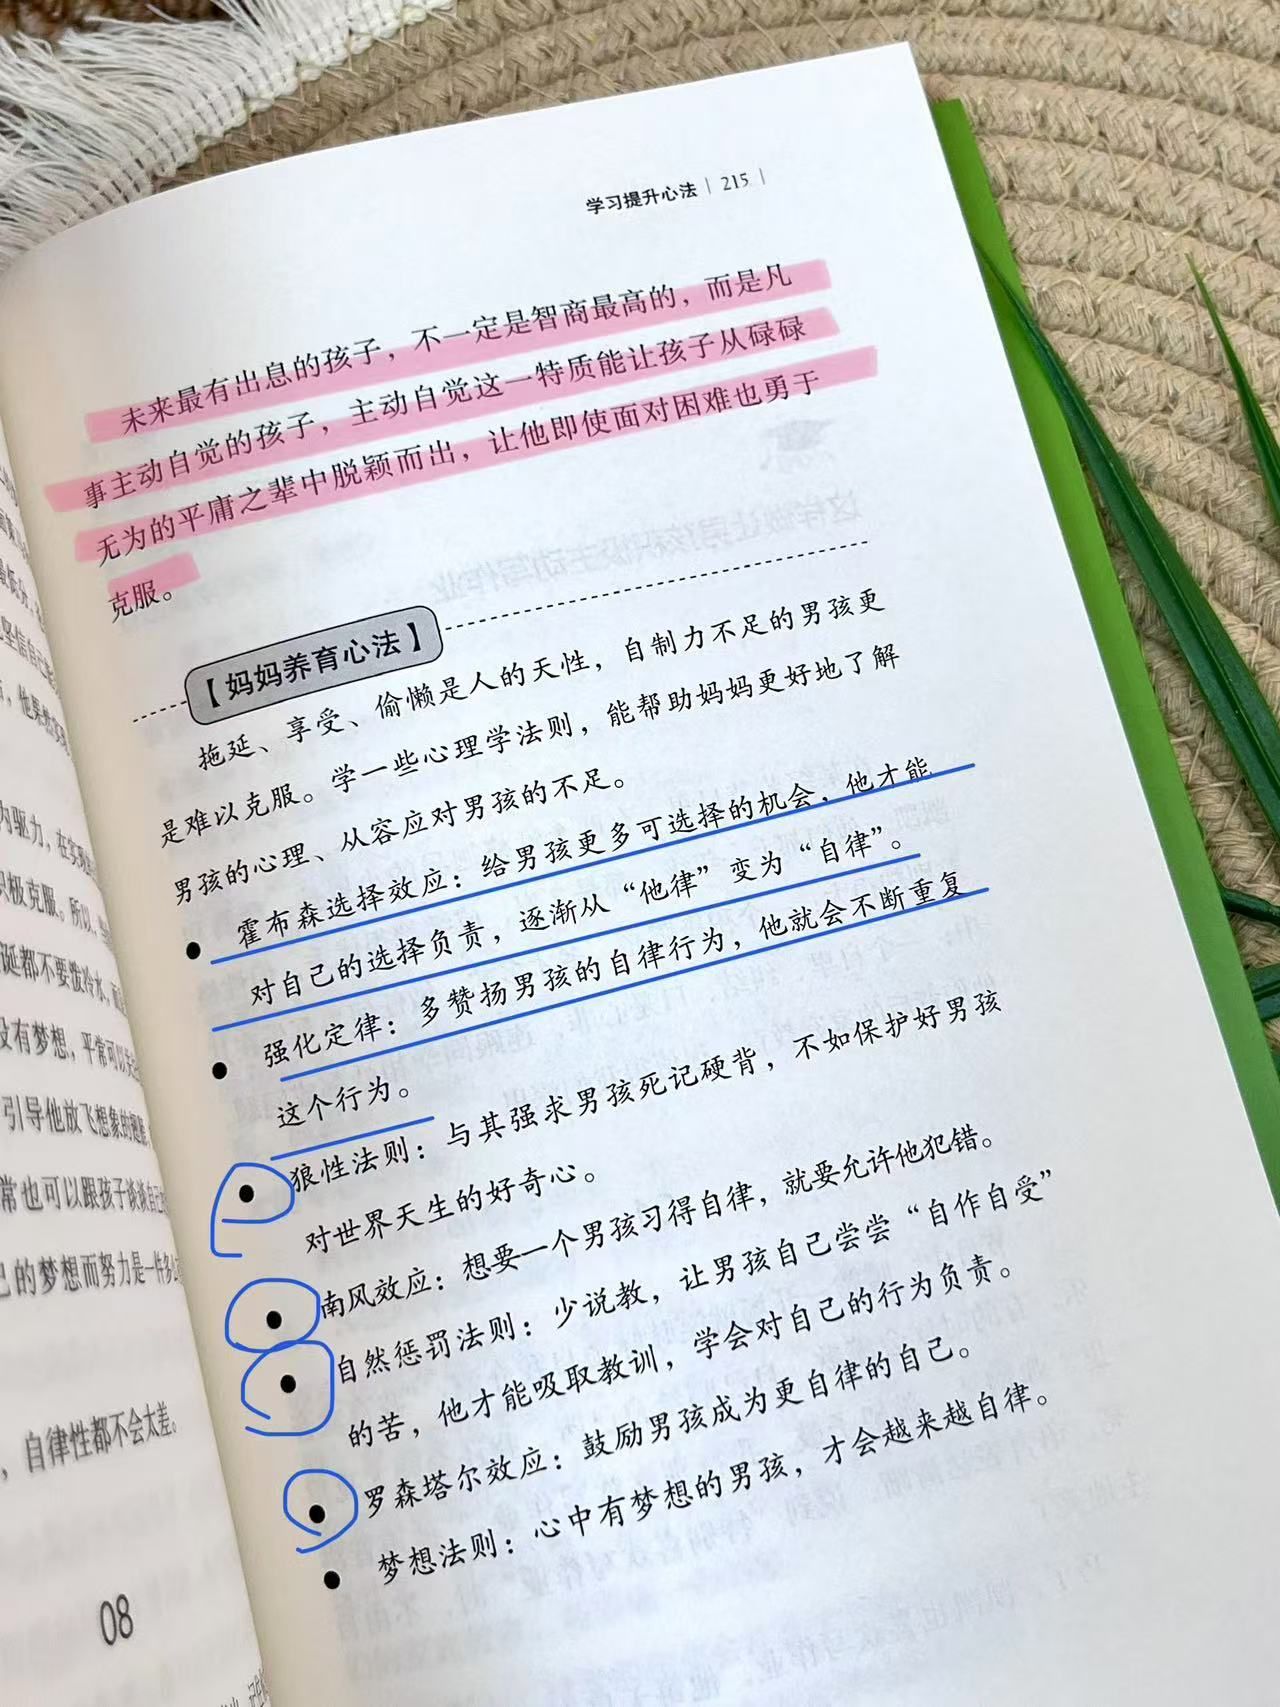 学习提升心法 | 215 |
未来最有出息的孩子，不一定是智商最高的，而是凡
事主动自觉的孩子，主动自觉这一特质能让孩子从碌碌
无为的平庸之辈中脱颖而出，让他即使面对困难也勇于
克服。
【妈妈养育心法】
拖延、享受、偷懒是人的天性，自制力不足的男孩更
是难以克服。学一些心理学法则，能帮助妈妈更好地了解
男孩的心理、从容应对男孩的不足。
● 霍布森选择效应：给男孩更多可选择的机会，他才能
对自己的选择负责，逐渐从“他律”变为“自律”。
● 强化定律：多赞扬男孩的自律行为，他就会不断重复
这个行为。
● 狼性法则：与其强求男孩死记硬背，不如保护好男孩
对世界天生的好奇心。
● 南风效应：想要一个男孩习得自律，就要允许他犯错。
● 自然惩罚法则：少说教，让男孩自己尝尝“自作自受”
的苦，他才能吸取教训，学会对自己的行为负责。
● 罗森塔尔效应：鼓励男孩成为更自律的自己。
● 梦想法则：心中有梦想的男孩，才会越来越自律。
内驱力，在
积极克服。所以，
诞都不要泼冷水，
没有梦想，平常可以
引导他放飞想象的翅膀
常也可以跟孩子谈谈自己
己的梦想而努力是一件多么
，自律性都不会太差。
08